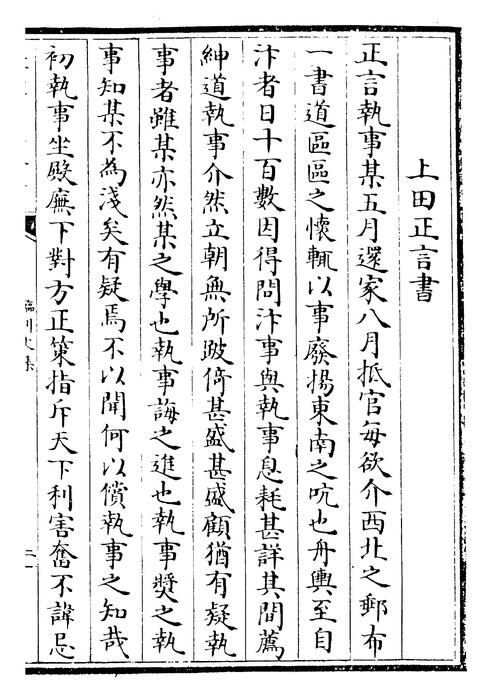 上田正言書
正言執事某五月還家八月抵官每欲介西北之郵布
一書道區區之懷輒以事廢揚東南之吭也舟輿至自
汴者日十百數因得問汴事與執事息耗甚詳其間薦
紳道執事介然立朝無所跛倚甚盛甚盛顧猶有疑執
事者雖某亦然某之學也執事誨之進也執事奬之執
事知某不為淺矣有疑焉不以聞何以償執事之知哉
初執事坐殿廡下對方正策指斥天下利害奮不諱忌
臨川文集